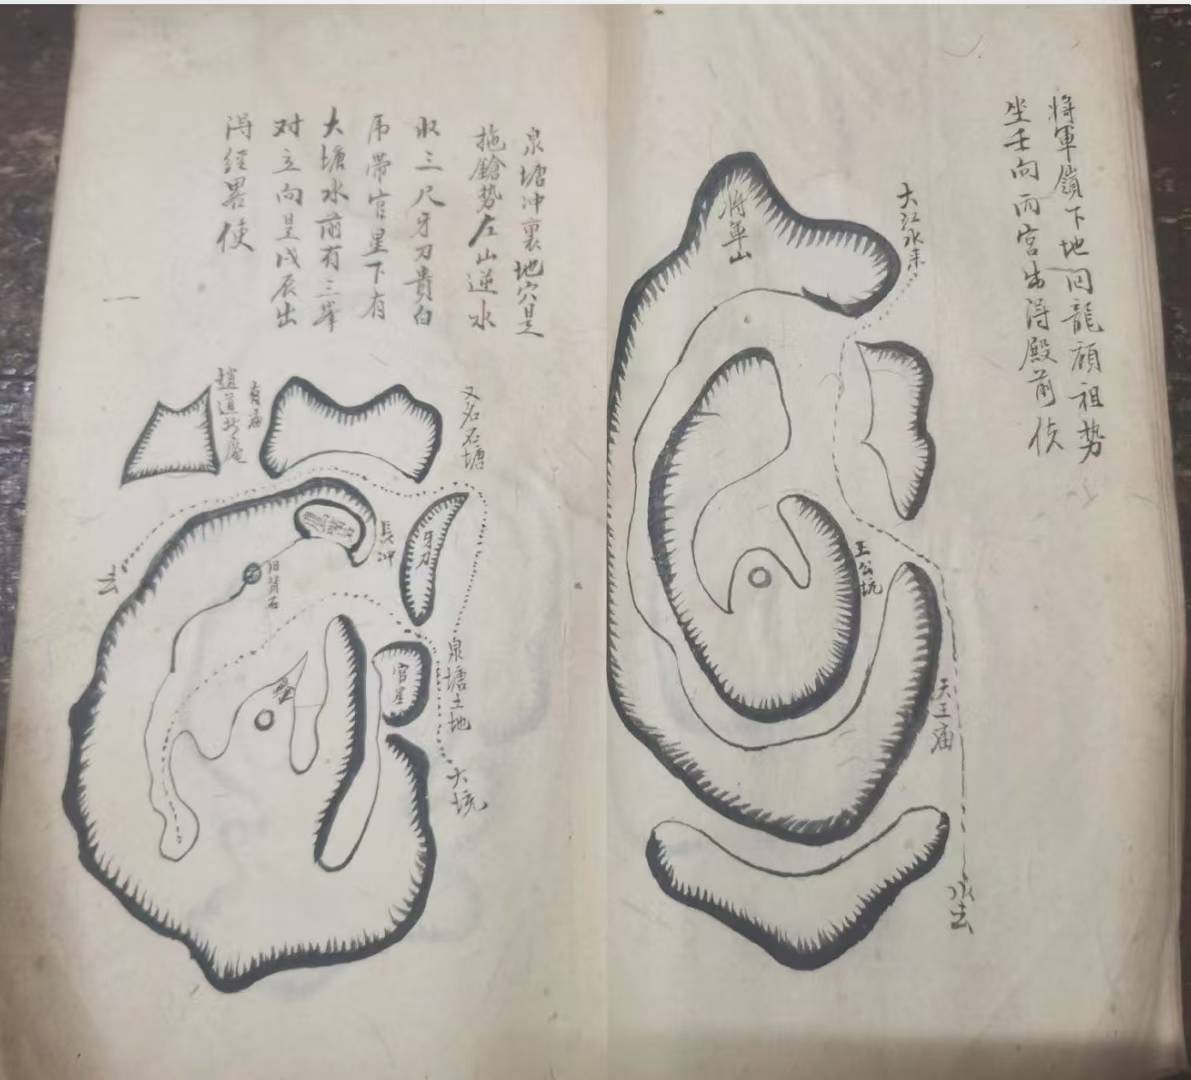 將軍嶺下地回龍顧祖势
坐壬向丙宫出得殿前侯
大江水来
將軍山
王公坑
天王庙
水去
泉塘冲裏地穴是
拖鎗势左山逆水
收三尺牙刀貴白
吊帶官星下有
大塘水前有三峯
对立向是戊辰出
得经畧使
又名石塘
有庙
趙道
長冲
牙刀
去
官星
泉塘土地
大坑